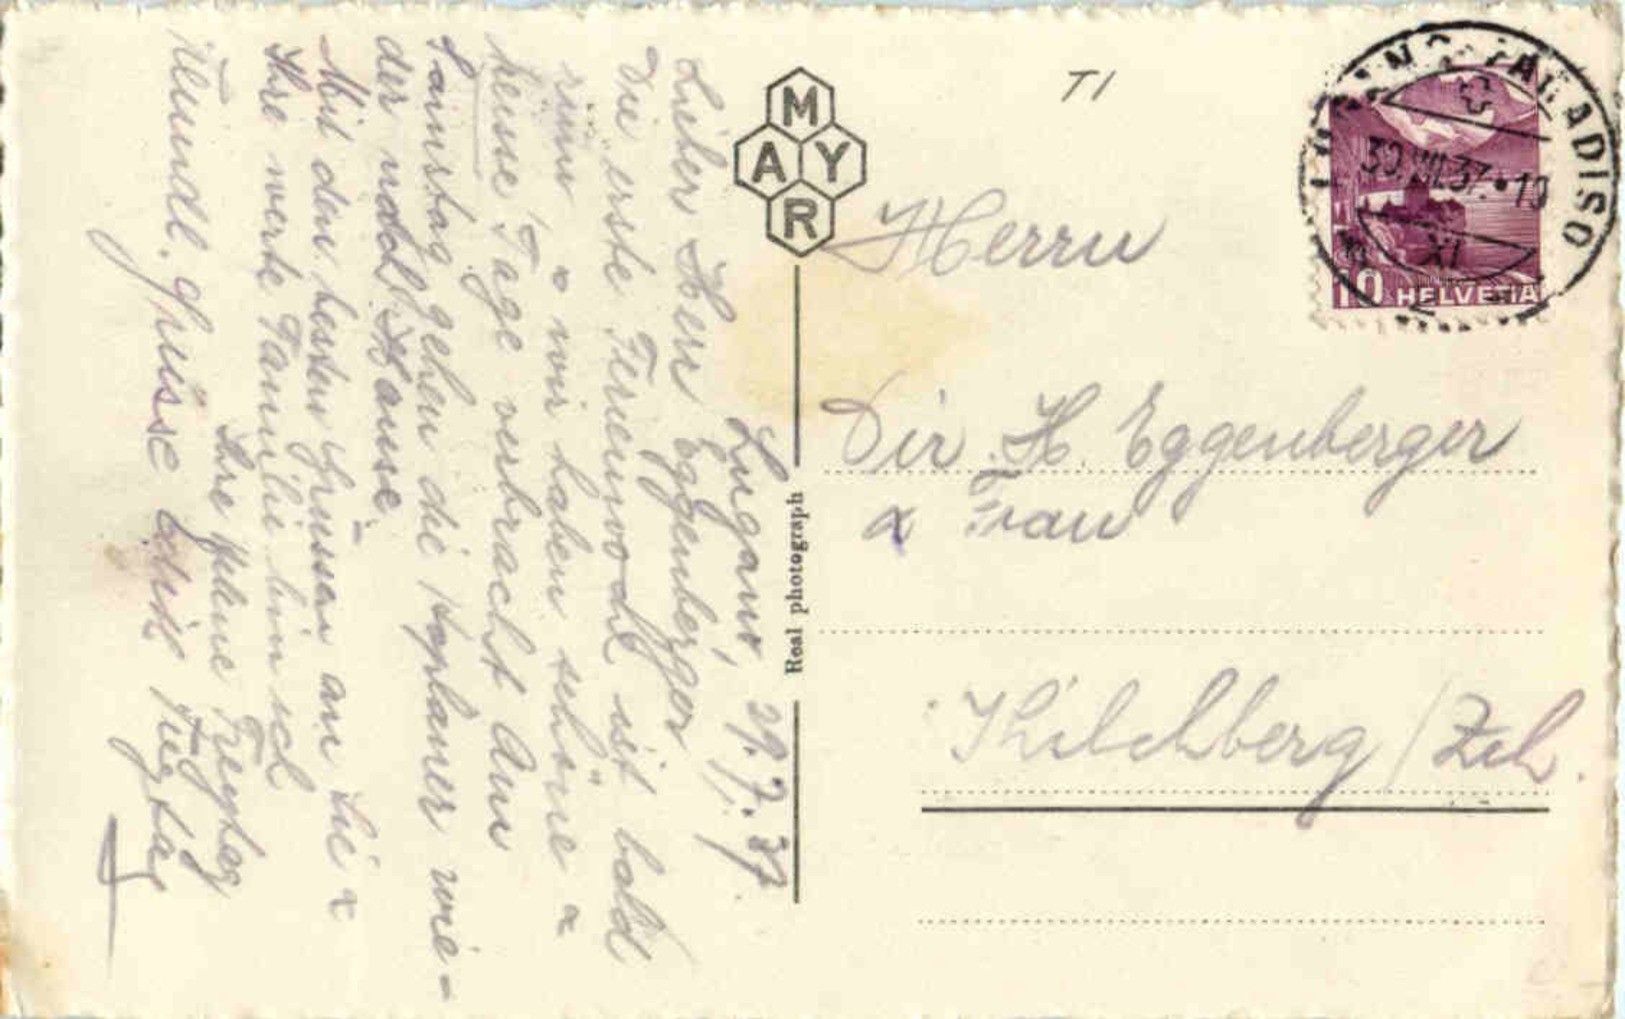 Lugano, 29.7.37
Lieber Herr Eggenberger
Die erste Ferienwoche ist bald
rum & wir haben schöne &
heisse Tage verbracht Am
Samstag gehen die wie-
der nach Hause.
Mit den besten Grüssen an Sie &
Ihre werte Familie bin ich
Ihre Freytag
freundl. Grüsse
MAYR
Real photograph
TI
LUGANO PARADISO
30.VII.37·19
XI
10 HELVETIA
Herrn
Dir. H. Eggenberger
& Frau
Kilchberg / Zch.